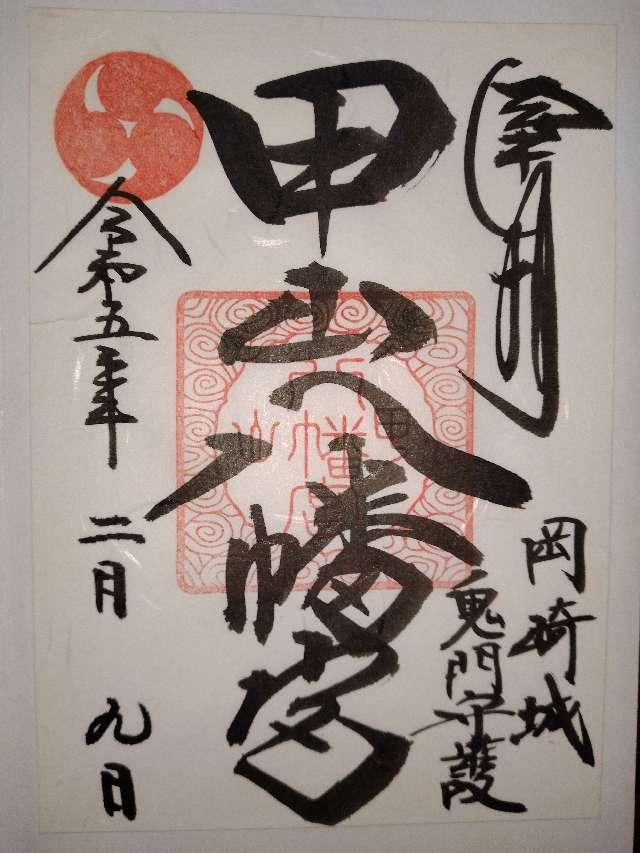 奉拝
岡崎城
鬼門守護
甲山八幡宮
令和五年
二月
九日